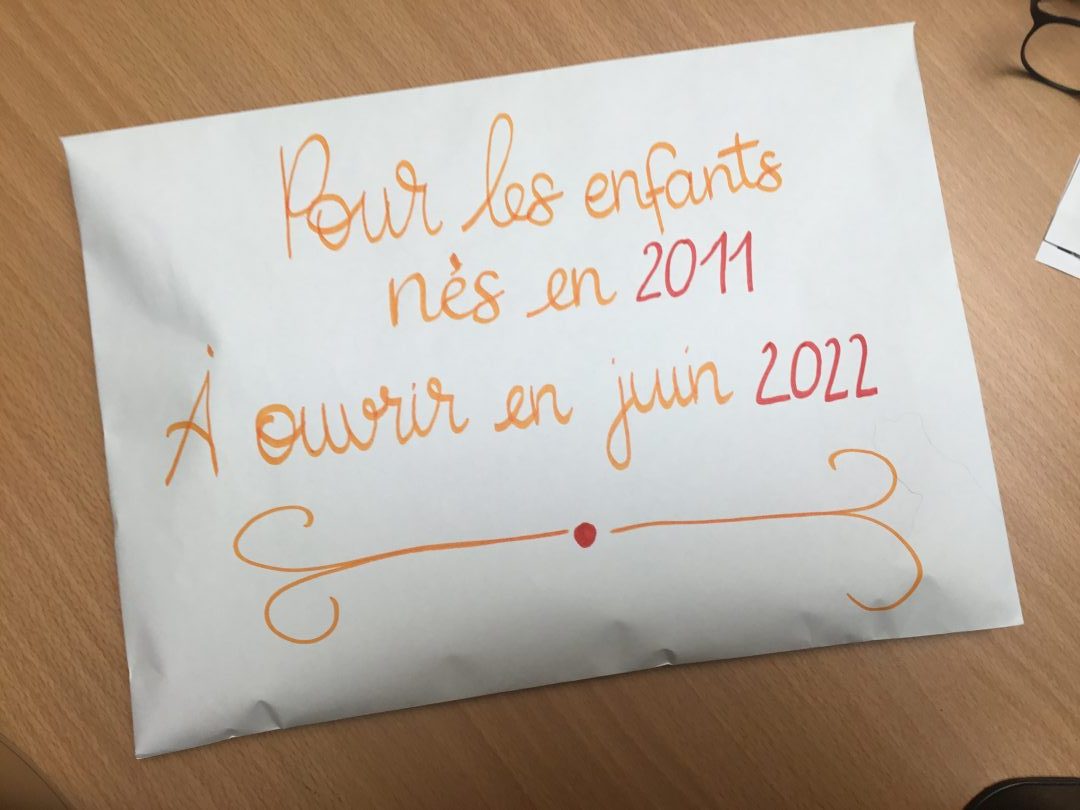 Pour les enfants
nés en 2011
À ouvrir en juin 2022